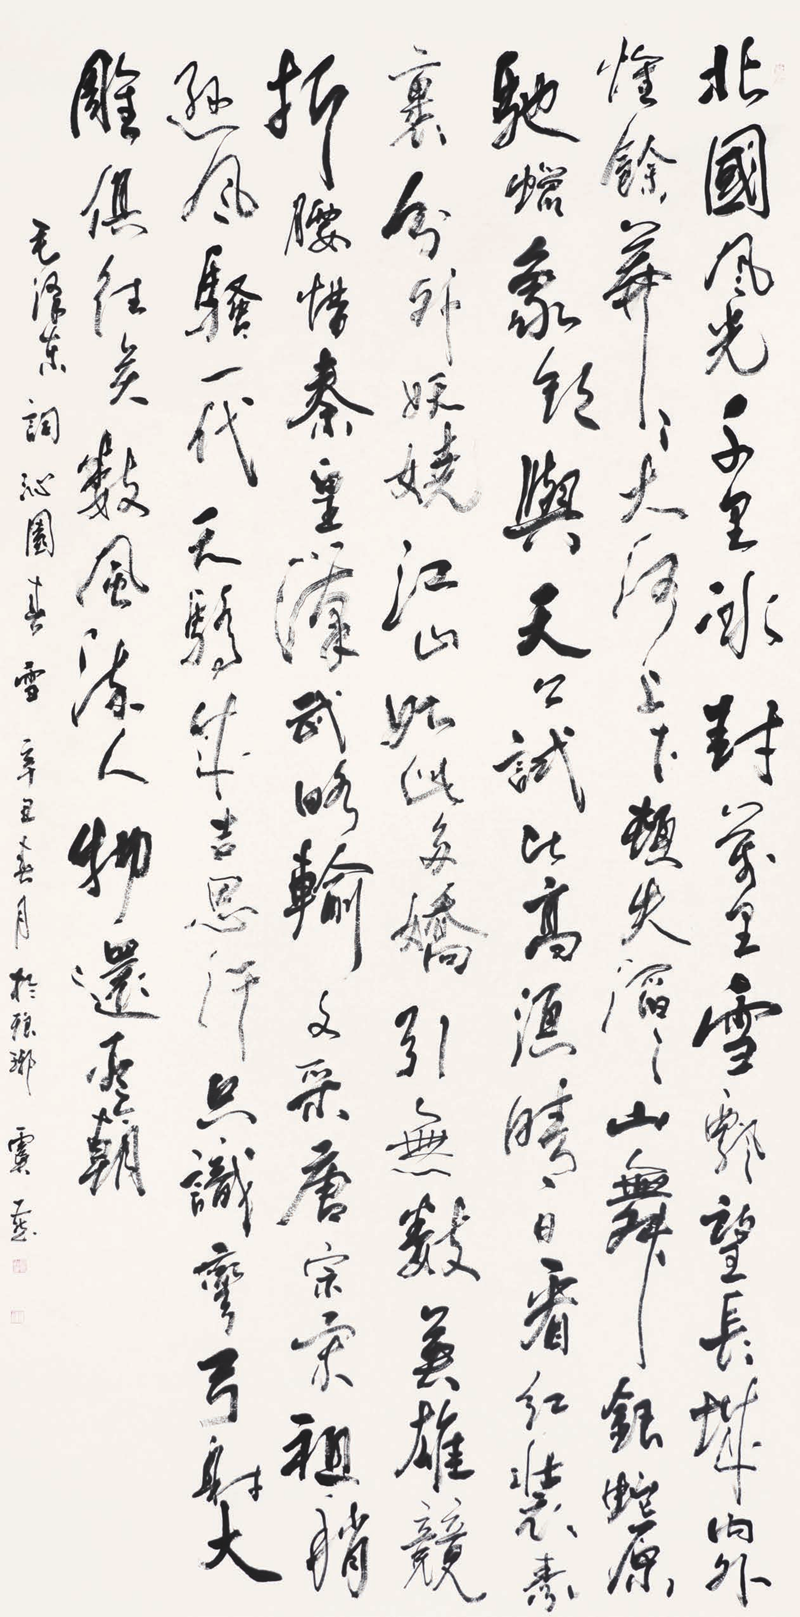 北國風光千里冰封萬里雪飄望長城内外
惟餘莽々大河上下頓失滔々山舞銀蛇原
馳蠟象欲與天公試比高須晴日看紅裝素
裹分外妖嬈江山如此多嬌引無數英雄競
折腰惜秦皇漢武略輸文采唐宗宋祖稍
遜風騷一代天驕成吉思汗只識彎弓射大
雕俱往矣數風流人物還看今朝
毛澤東詞沁園春雪 辛丑春月於琅琊